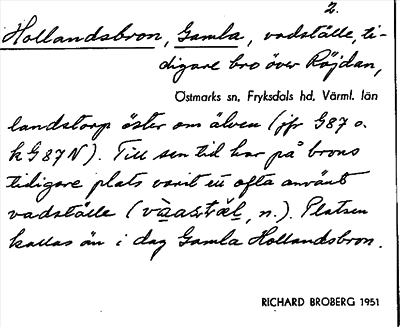 2.
Hollandsbron, Gamla, vadställe, ti-
digare bro över Röjdan,
Östmarks sn, Fryksdals hd, Värml. län
landstorp öster om älven (jfr G87 o.
k G87N). Till sen tid har på brons
tidigare plats varit ett ofta använt
vadställe (, n.). Platsen
kallas än i dag Gamla Hollandsbron.
RICHARD BROBERG 1951